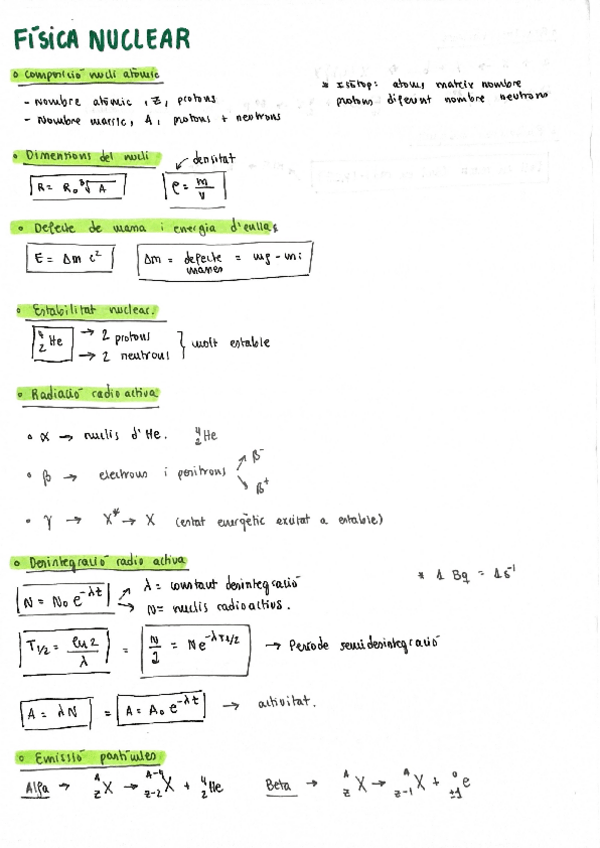 FÍSICA NUCLEAR
◦ Composició nucli atòmic
- Nombre atòmic, Z, protons
- Nombre màssic, A, protons + neutrons
* Isòtop: atoms mateix nombre
protons diferent nombre neutrons
◦ Dimensions del nucli
densitat
R = R₀ ³√A
ρ = m/V
◦ Defecte de massa i energia d'enllaç
E = Δm c²
Δm = defecte masses = mf - mi
◦ Estabilitat nuclear.
⁴₂He → 2 protons
→ 2 neutrons
} molt estable
◦ Radiació radioactiva
• α → nuclis d'He. ⁴₂He
• β → electrons i positrons
β⁻
β⁺
• γ → X* → X (estat energètic excitat a estable)
◦ Desintegració radioactiva
N = N₀ e^-λt
λ = constant desintegració
N = nuclis radioactius.
* 1 Bq = 1s⁻¹
T1/2 = ln 2/λ = N/2 = N e^-λT1/2 → Període semidesintegració
A = λN = A = A₀ e^-λt → activitat.
◦ Emissió partícules
Alfa → ᴬzX → ᴬ⁻⁴z-2X + ⁴₂He
Beta → ᴬzX → ᴬz-1X + ⁰±1e